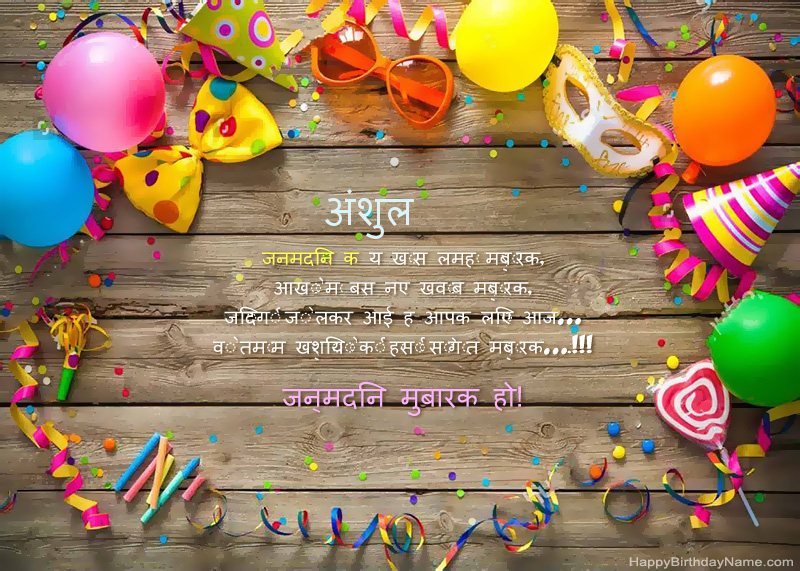 अंशुल
जनमदनि क य खास लमहा मबारक,
आखो मा बस नए खवाब मबारक,
जदिगी जो लेकर आई ह आपक लएि आज...
वो तमाम खशयिो की हसी सौगात मबारक....!!!
जन्मदनि मुबारक हो!
HappyBirthdayName.com